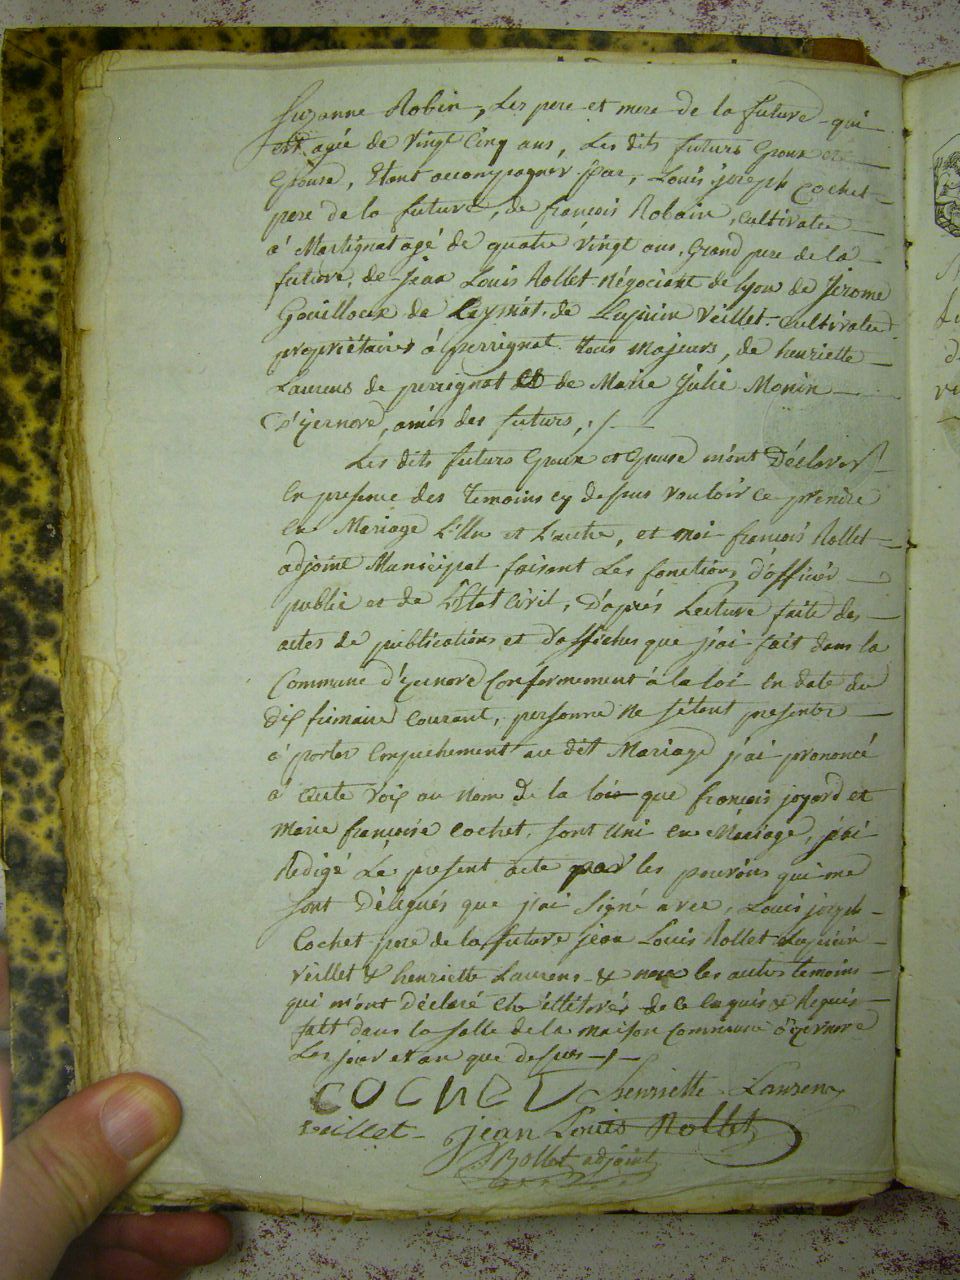 Suzanne Robin, Les pere et mere de la future qui
est agée de vingt Cinq ans, Les dits futurs Epoux et
Epouse, Etant accompagner par, Louis joseph Cochet
pere de la future, de françois Robain, Cultivateur
á Martignat agé de quatre vingt ans, Grand pere de la
future, de Jean Louis Rollet Négociant de lyon de Jerome
Gouilloux de Leymiat, de Lupicin Veillet, Cultivateur
propriétaires á perrignat tous majeurs, de henriette
Laurens de perrignat et de Marie Julie Monin
D'yzernore, amis des futurs, ./.
Les dits futurs Epoux et Epouse m'ont Déclarer
En presence des temoins cy dessus vouloir ce prendre
En Mariage L'Un et L'autre, et moi françois Rollet
adjoint Municipal faisant Les fonctions d'officier
public et de l'Etat Civil, D'aprés Lecture faite des
actes de publications et d'affiches que j'ai fait dans la
Commune d'yzernore Conformement á la loi En date du
dix frimaire Courant, personne ne s'étant presenter
á porter Empechement au dit Mariage j'ai prononcé
á aute voix au nom de la loi que francois joyard et
Marie françoise Cochet, sont Uni En Mariage, j'ai
Rédigé Le present acte par les pouvoirs qui me
sont Délégués que j'ai Signé avec, Louis joseph
Cochet pere de la future jean Louis Rollet Lupicin
Veillet & henriette Laurens & non les autres temoins
qui m'ont Déclaré Etre illiterés de ce Enquis & Requis
fait dans la salle de la maison Commune d'yzernore
Les jour et an que dessus
COCHET henriette Laurens
veillet jean Louis Rollet
Rollet adjoint